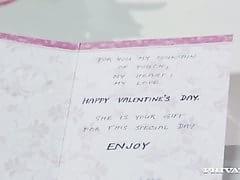 FOR YOU MY FOUNTAIN
OF TOUCH,
MY HEART,
MY LOVE.
HAPPY VALENTINE'S DAY.
SHE IS YOUR GIFT
FOR THIS SPECIAL DAY
ENJOY
PRIVATE